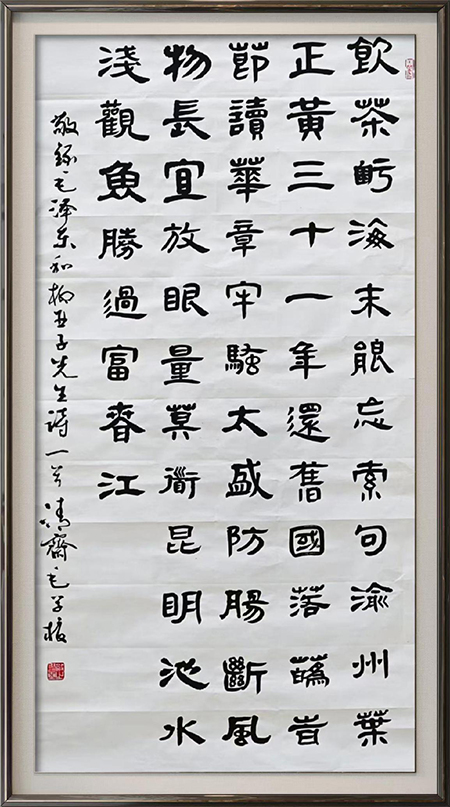 飲茶粵海未能忘索句渝州葉
正黃三十一年還舊國落蘤旹
節讀華章牢騷太盛防腸斷風
物長宜放眼量莫衟昆明池水
淺觀魚勝過富萅江
敬録毛泽东和柳亚子先生诗一首清齋毛学